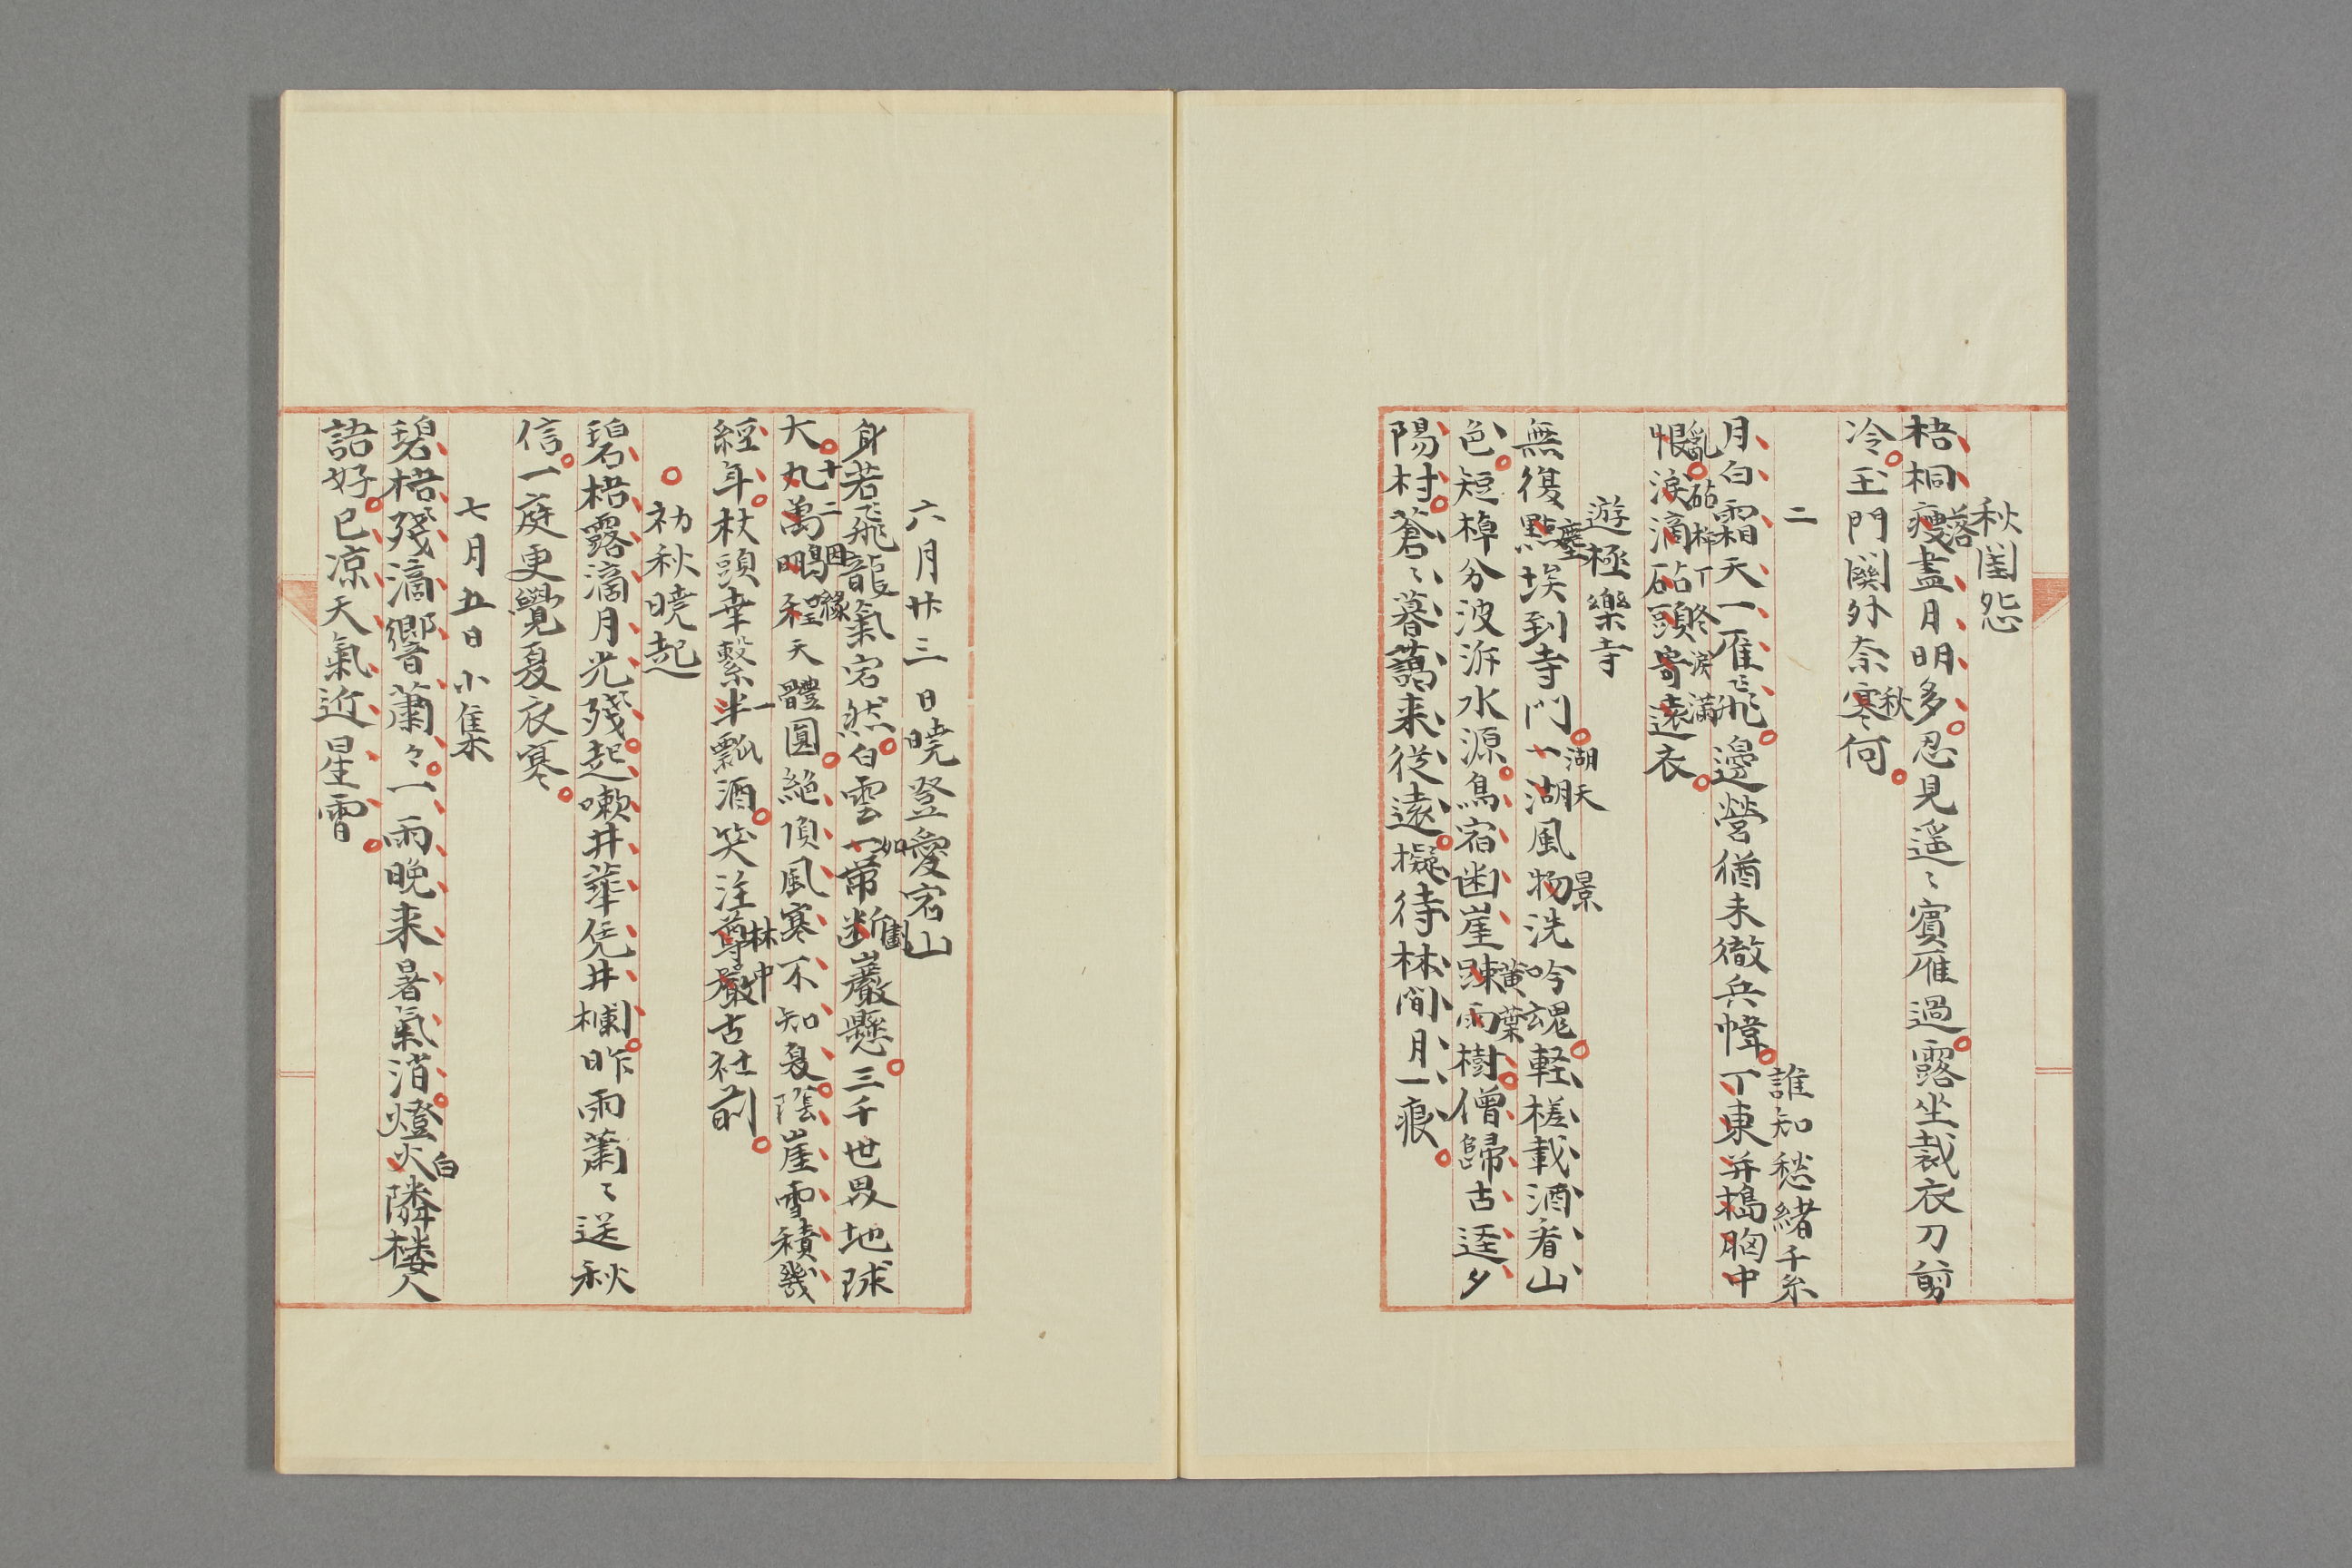 秋閨怨
落
梧桐瘦盡月明多忍見遥〻賓雁過露坐裁衣刀剪
秋
冷玉門關外奈寒何
二
誰知愁緒千糸
月白霜天一雁飛邊營猶未徹兵幃丁東并搗胸中
亂砧杵丁冬淚満
恨淚滴砧頭寄遠衣
遊極樂寺
塵 湖天 景
無復點埃到寺門一湖風物洗吟魂軽槎載酒看山
黄葉
色短棹分波泝水源鳥宿幽崖踈雨樹僧歸古逕夕
陽村蒼〻暮藹来従遠擬待林間月一痕
六月廿三日曉登愛宕山
如 劃
身若飛龍氣宕然白雲一帯断巖懸三千世界地球
十二因緣
大九萬鵬程天體圓絶頂風寒不知夏陰崖雪積幾
一 林中
經年杖頭幸繫半瓢酒笑注尊嚴古社前
初秋曉起
碧梧露滴月光殘起嗽井華凭井欄昨雨蕭〻送秋
信一庭更覺夏衣寒
七月五日小集
白
碧梧殘滴響蕭々一雨晩来暑氣消燈火隣楼人
語好已凉天氣近星霄